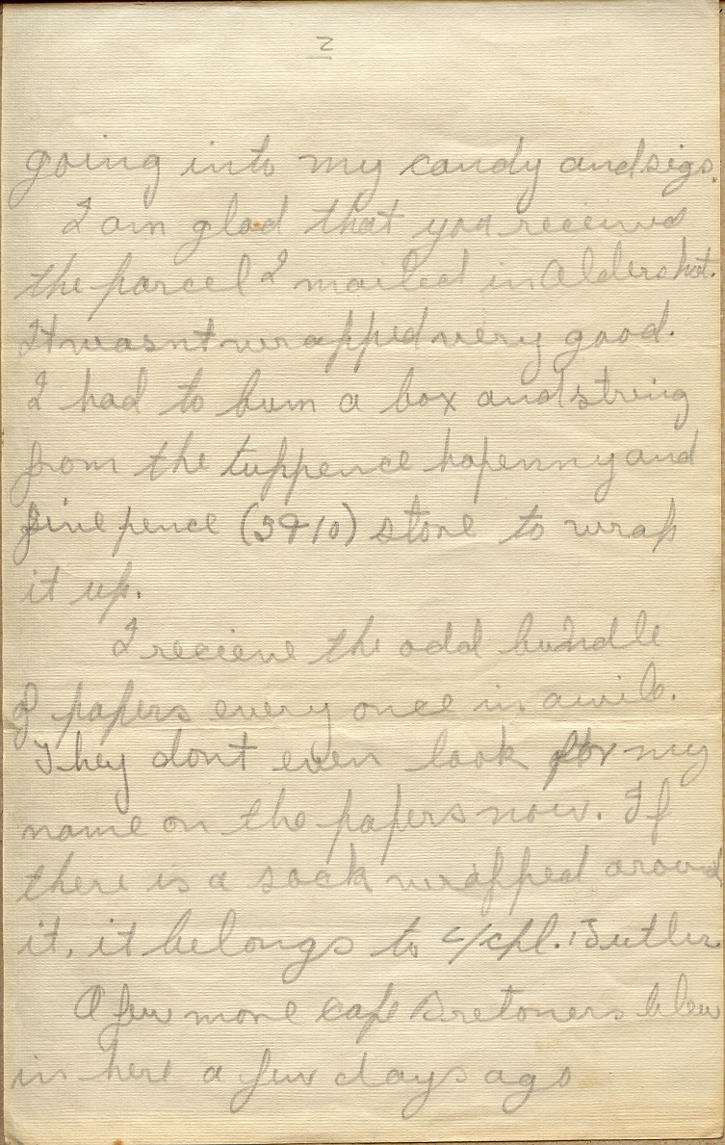 2
going into my candy and sigs.
I am glad that you received
the parcel I mailed in Aldershot.
It wasnt wrapped very good.
I had to bum a box and string
from the tuppence hapenny and
five pence (5&10) store to wrap
it up.
I recieve the odd bundle
of papers every once in awile.
They dont even look for my
name on the papers now. If
there is a sock wrapped around
it, it belongs to L/cpl. Butler
A few more Cape Bretoners blew
in here a few days ago